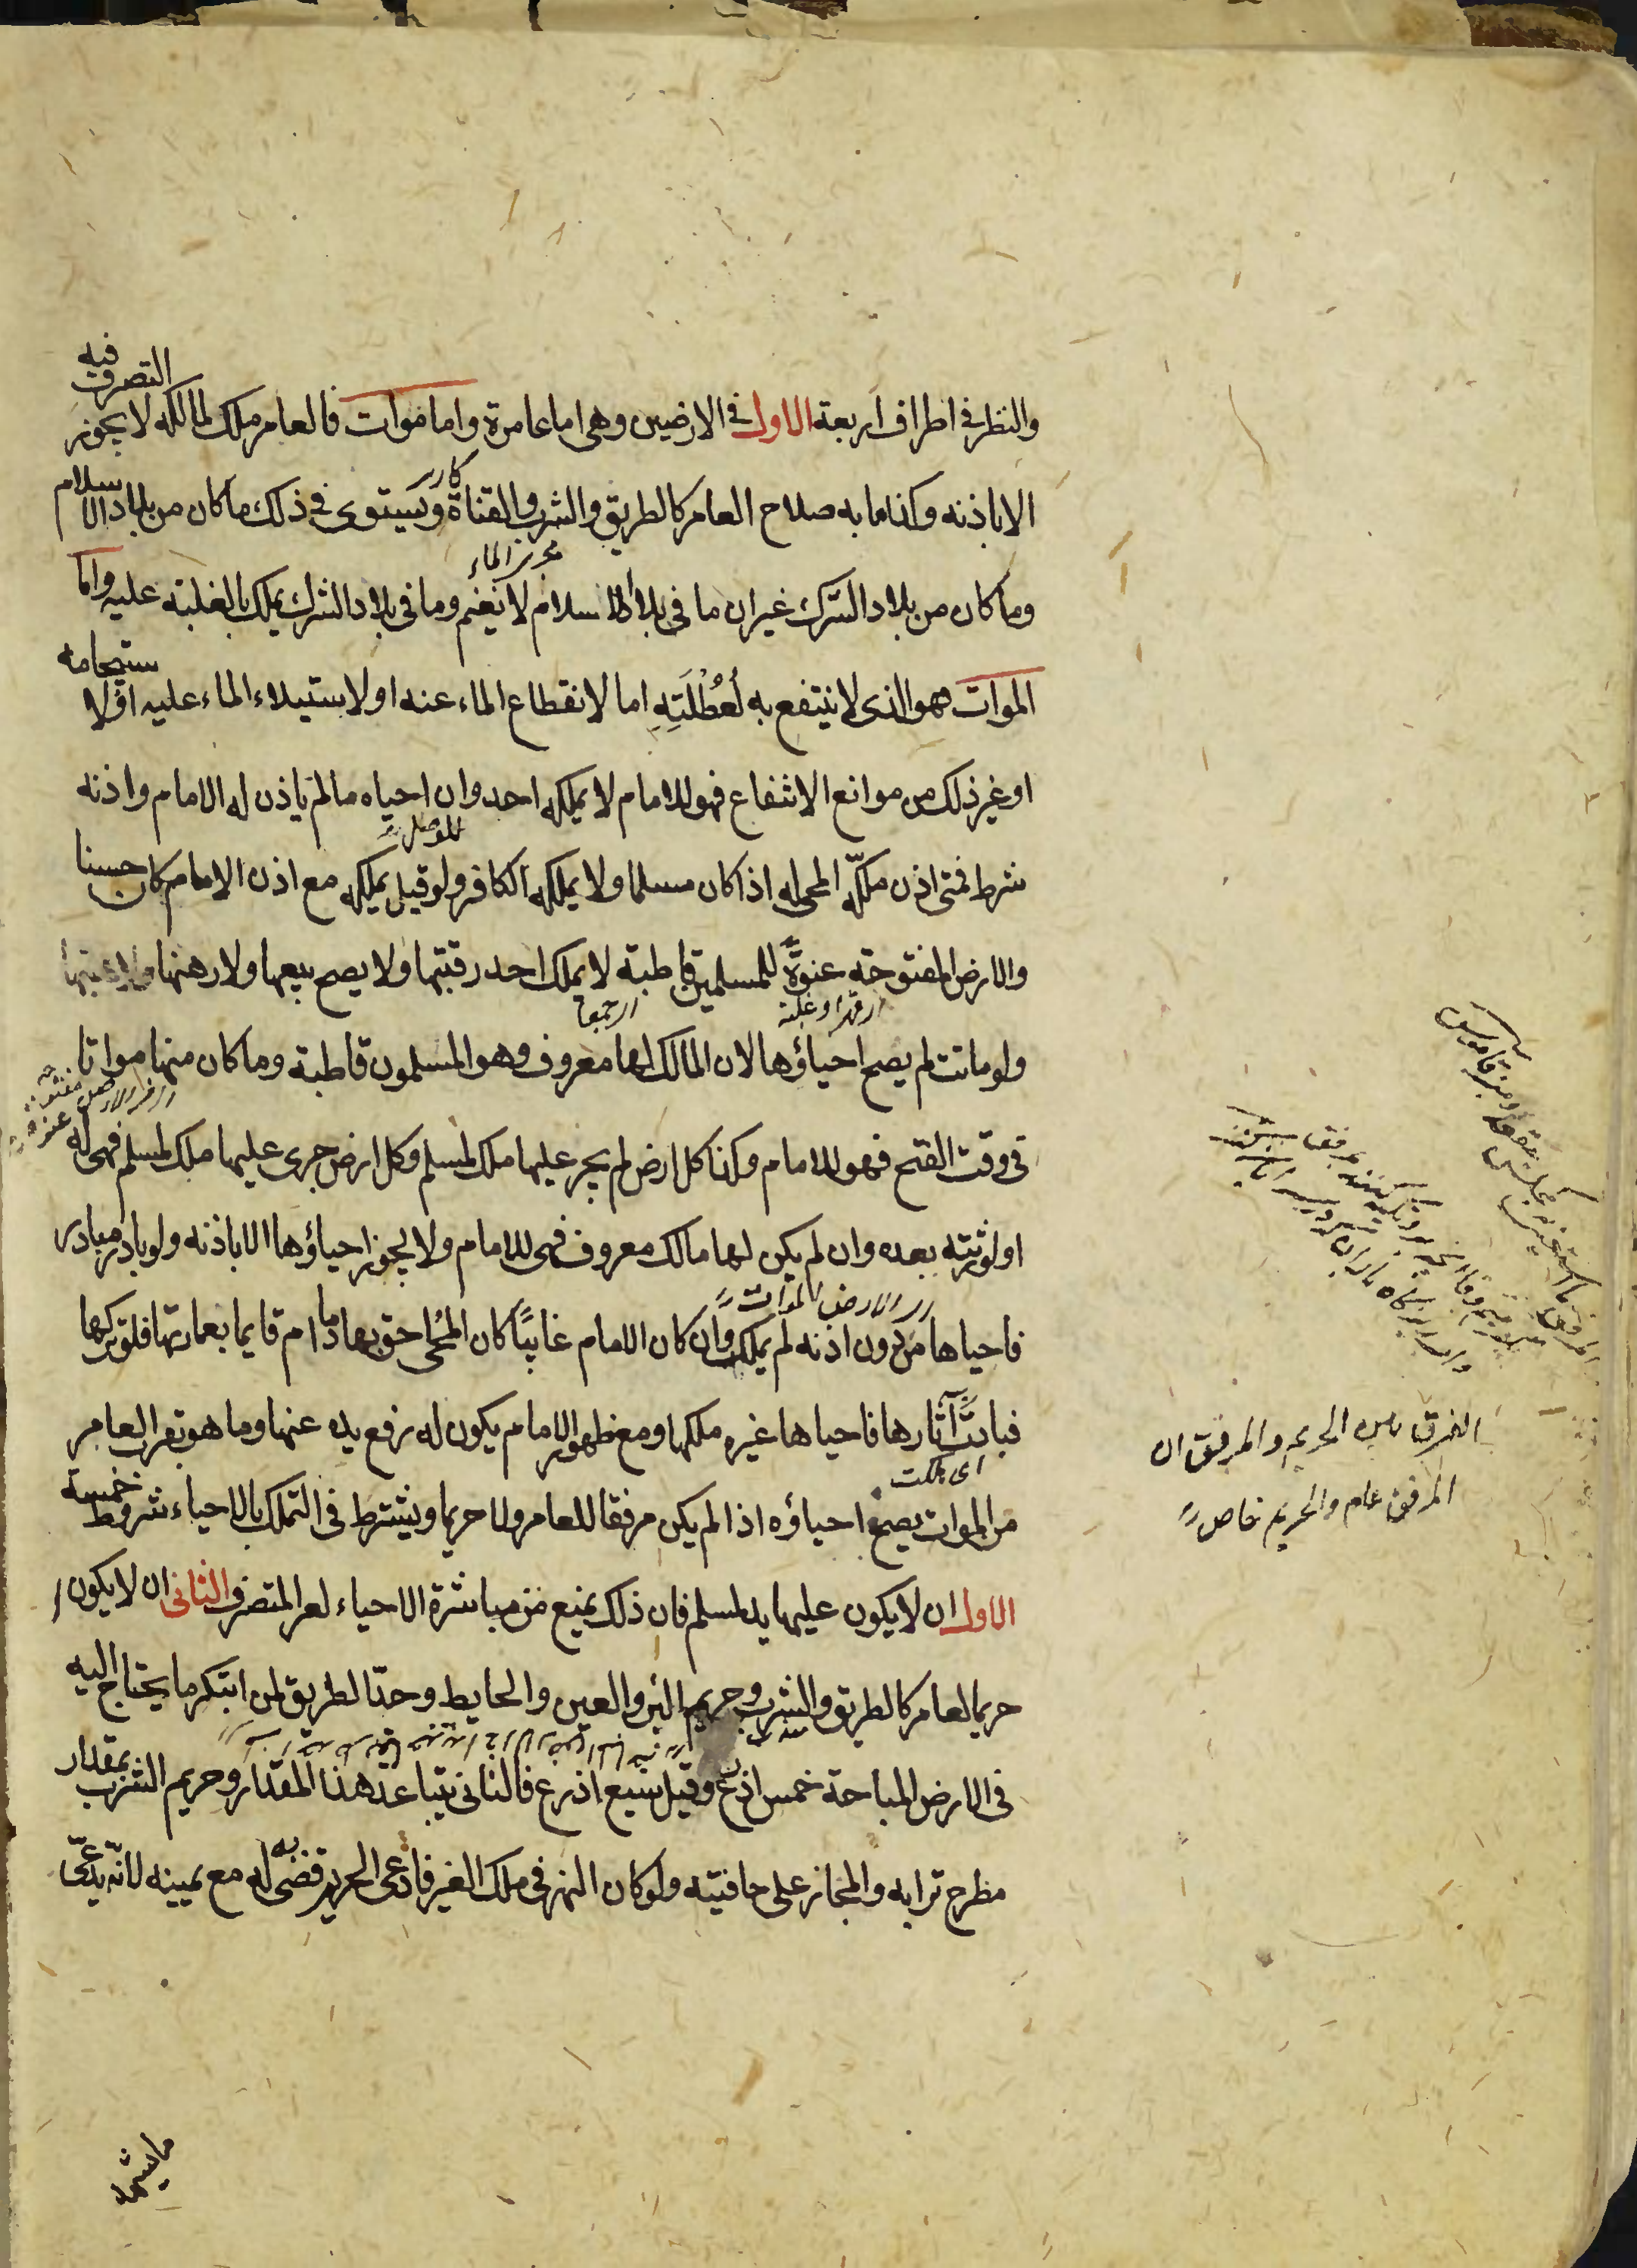 والنظر في اطراف اربعة الاول في الارضين وهى اما عامرة واما موات فالعامر ملك لمالكه لا يجوز التصرف فيه
الا باذنه وكذا ما به صلاح العامر كالطريق والشرب والقناة ويستوى في ذلك ما كان من بلاد الاسلام
وما كان من بلاد الشرك غير ان ما فى بلاد الاسلام لا يغنم وما فى بلاد الشرك يملك بالغلبة عليه واما
الموات فهو الذى لا ينتفع به لعُطْلَتِهِ اما لانقطاع الماء عنه او لاستيلاء الماء عليه او لاستيجامه
او غير ذلك من موانع الانتفاع فهو للامام لا يملكه احد وان احياه ما لم ياذن له الامام واذنه
شرط فمتى اذن ملكه المحيى له اذا كان مسلما ولا يملكه الكافر ولو قيل يملكه مع اذن الامام كان حسنا
والارض المفتوحة عنوة للمسلمين قاطبة لا يملك احد رقبتها ولا يصح بيعها ولا رهنها
اى قهرا وغلبة
ولو ماتت لم يصح احياؤها لان المالك لها معروف وهو المسلمون قاطبة وما كان منها مواتا
فى وقت الفتح فهو للامام وكذا كل ارض لم يجر عليها ملك لمسلم وكل ارض جرى عليها ملك لمسلم فهى له
او لورثته بعده وان لم يكن لها مالك معروف فهى للامام ولا يجوز احياؤها الا باذنه ولو بادر مبادر
اى الارض الموات
فاحياها من دون اذنه لم يملك وان كان الامام غايبًا كان المحيى احق بها ما دام قايما بعمارتها فلو تركها
فبادت آثارها فاحياها غيره ملكها ومع ظهور الامام يكون له رفع يده عنها وما هو بقرب العامر
اى هلكت
من الموات يصح احياؤه اذا لم يكن مرفقا للعامر ولا حريما ويشترط فى التملك بالاحياء شروط خمسة
الاول ان لا يكون عليها يد لمسلم فان ذلك يمنع من مباشرة الاحياء لغير المتصرف الثانى ان لا يكون
حريما لعامر كالطريق والشرب وحريم البئر والعين والحايط وحدّ الطريق لمن ابتكر ما يحتاج اليه
فى الارض المباحة خمس اذرع وقيل سبع اذرع فالثانى يتباعد هذا المقدار وحريم الشرب بمقدار
مطرح ترابه والمجاز على حافتيه ولو كان النهر فى ملك الغير فادعى الحريم قضى له به مع يمينه لانه يدّعى
الفرق بين الحريم والمرفق ان
المرفق عام والحريم خاص